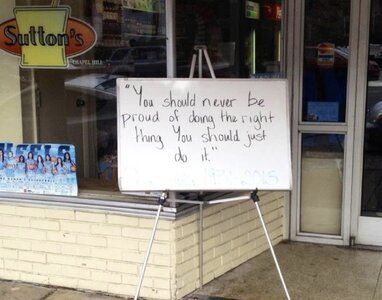 Sutton's
CHAPEL HILL
"You should never be
proud of doing the right
thing You should just
do it."
2015